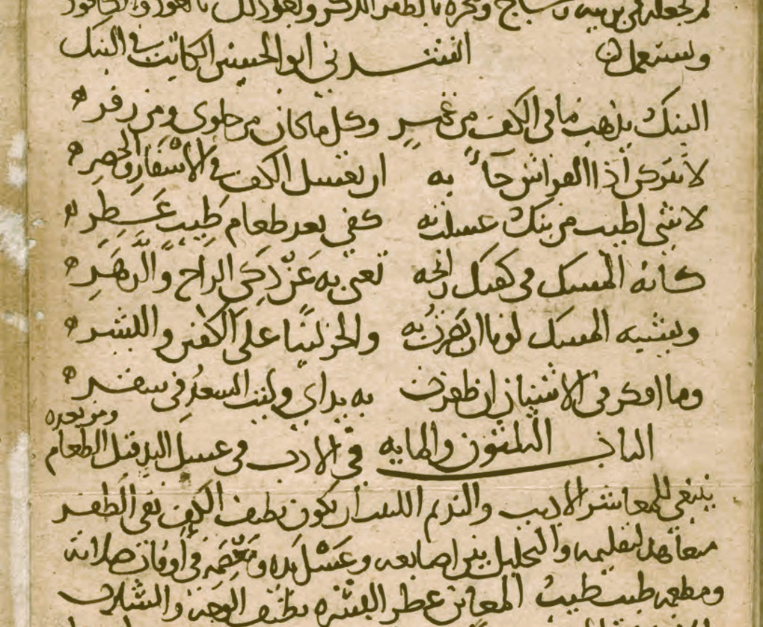 زجاج بالظفر الذكر
ويستعمل انشدني ابو الحسين الكاتب في البنك
البنك يذهب ما في الكف من غمر وكل ما كان من حلوى ومن زفر
لا تتركن اذا الفراش جآء به ان تغسل الكف في الاسفار والحضر
لا شي اطيب من بنك غسلت به كفي بعد طعام طيب عطر
كانه المسك في كفيك رائحه تغنى به عن ذكي الراح والزهر
ويشبه المسك لونا ان ظفرت به والخز لينا على الكفين والبشر
وما افكر في الاشنان ان ظفرت به يداي السعد في سفر
الباب الثلثون والمايه في الادب في غسل اليد قبل الطعام ومن بعده
ينبغي للمعاشر الاديب والنديم اللبيب ان يكون نظيف الكف نقي الظفر
متعاهدا لتقليمه والتخليل بين اصابعه وغسل يده ومعصمه في اوقات صلاته
ومطعمه طيب عطر البشره نظيف الوجه والشارب